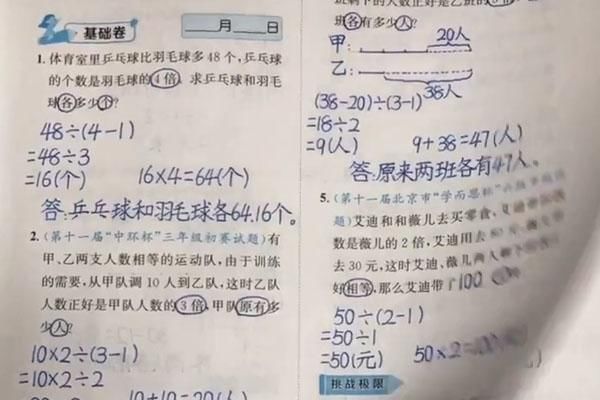 基础卷 ___月___日
1. 体育室里乒乓球比羽毛球多 48 个，乒乓球
的个数是羽毛球的 4 倍. 求乒乓球和羽毛
球各多少个?
48÷(4-1)
=48÷3
=16(个) 16×4=64(个)
答:乒乓球和羽毛球各64.16个。
2. (第十一届"中环杯"三年级初赛试题)有
甲、乙两支人数相等的运动队，由于训练
的需要，从甲队调 10 人到乙队，这时乙队
人数正好是甲队人数的 3 倍，甲队原有多
少人?
10×2÷(3-1)
=10×2÷2
班各有多少人?
甲: 20人
乙:
38人
(38-20)÷(3-1)
=18÷2
=9(人) 9+38=47(人)
答:原来两班各有47人。
5. (第十一届北京市"学而思杯"
题) 艾迪和和薇儿去买零食，
数是薇儿的 2 倍，艾迪用去
去 30 元，这时艾迪、薇儿两人
好相等，那么艾迪带了100
50÷(2-1)
=50÷1
=50(元) 50×2=
挑战极限